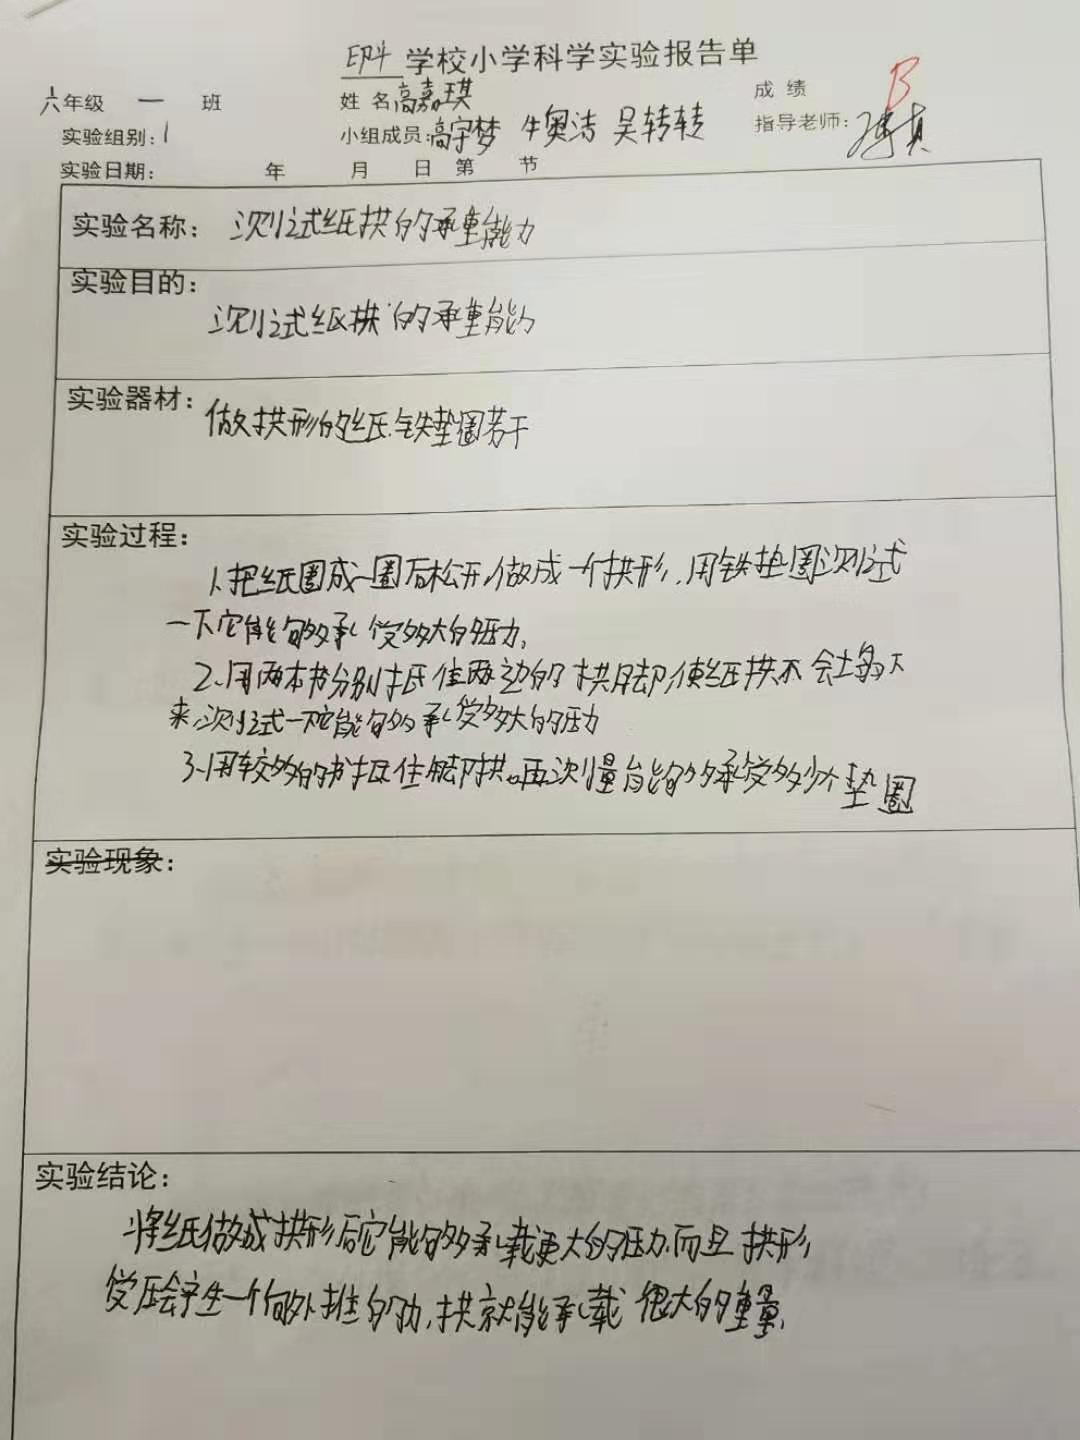 学校小学科学实验报告单
六年级 一 班 姓 名 高嘉琪 成 绩 B
实验组别: 1 小组成员: 高宇梦 牛奥洁 吴转转 指导老师:
实验日期: 年 月 日 第 节
实验名称: 测试纸拱的承重能力
实验目的:
测试纸拱的承重能力
实验器材: 做拱形的纸、铁垫圈若干
实验过程:
1、把纸圈成一圈后松开,做成一个拱形,用铁垫圈测试
一下它能够承受多大的压力,
2、用两本书分别抵住两边的拱脚,使纸拱不会塌下
来,测试一下它能够承受多大的压力
3、用较多的书抵住脚拱。再测量能够承受多少个垫圈
实验现象:
实验结论:
将纸做成拱形后它能够承载更大的压力,而且拱形
受压会产生一个向外推的力,拱就能承载很大的重量,